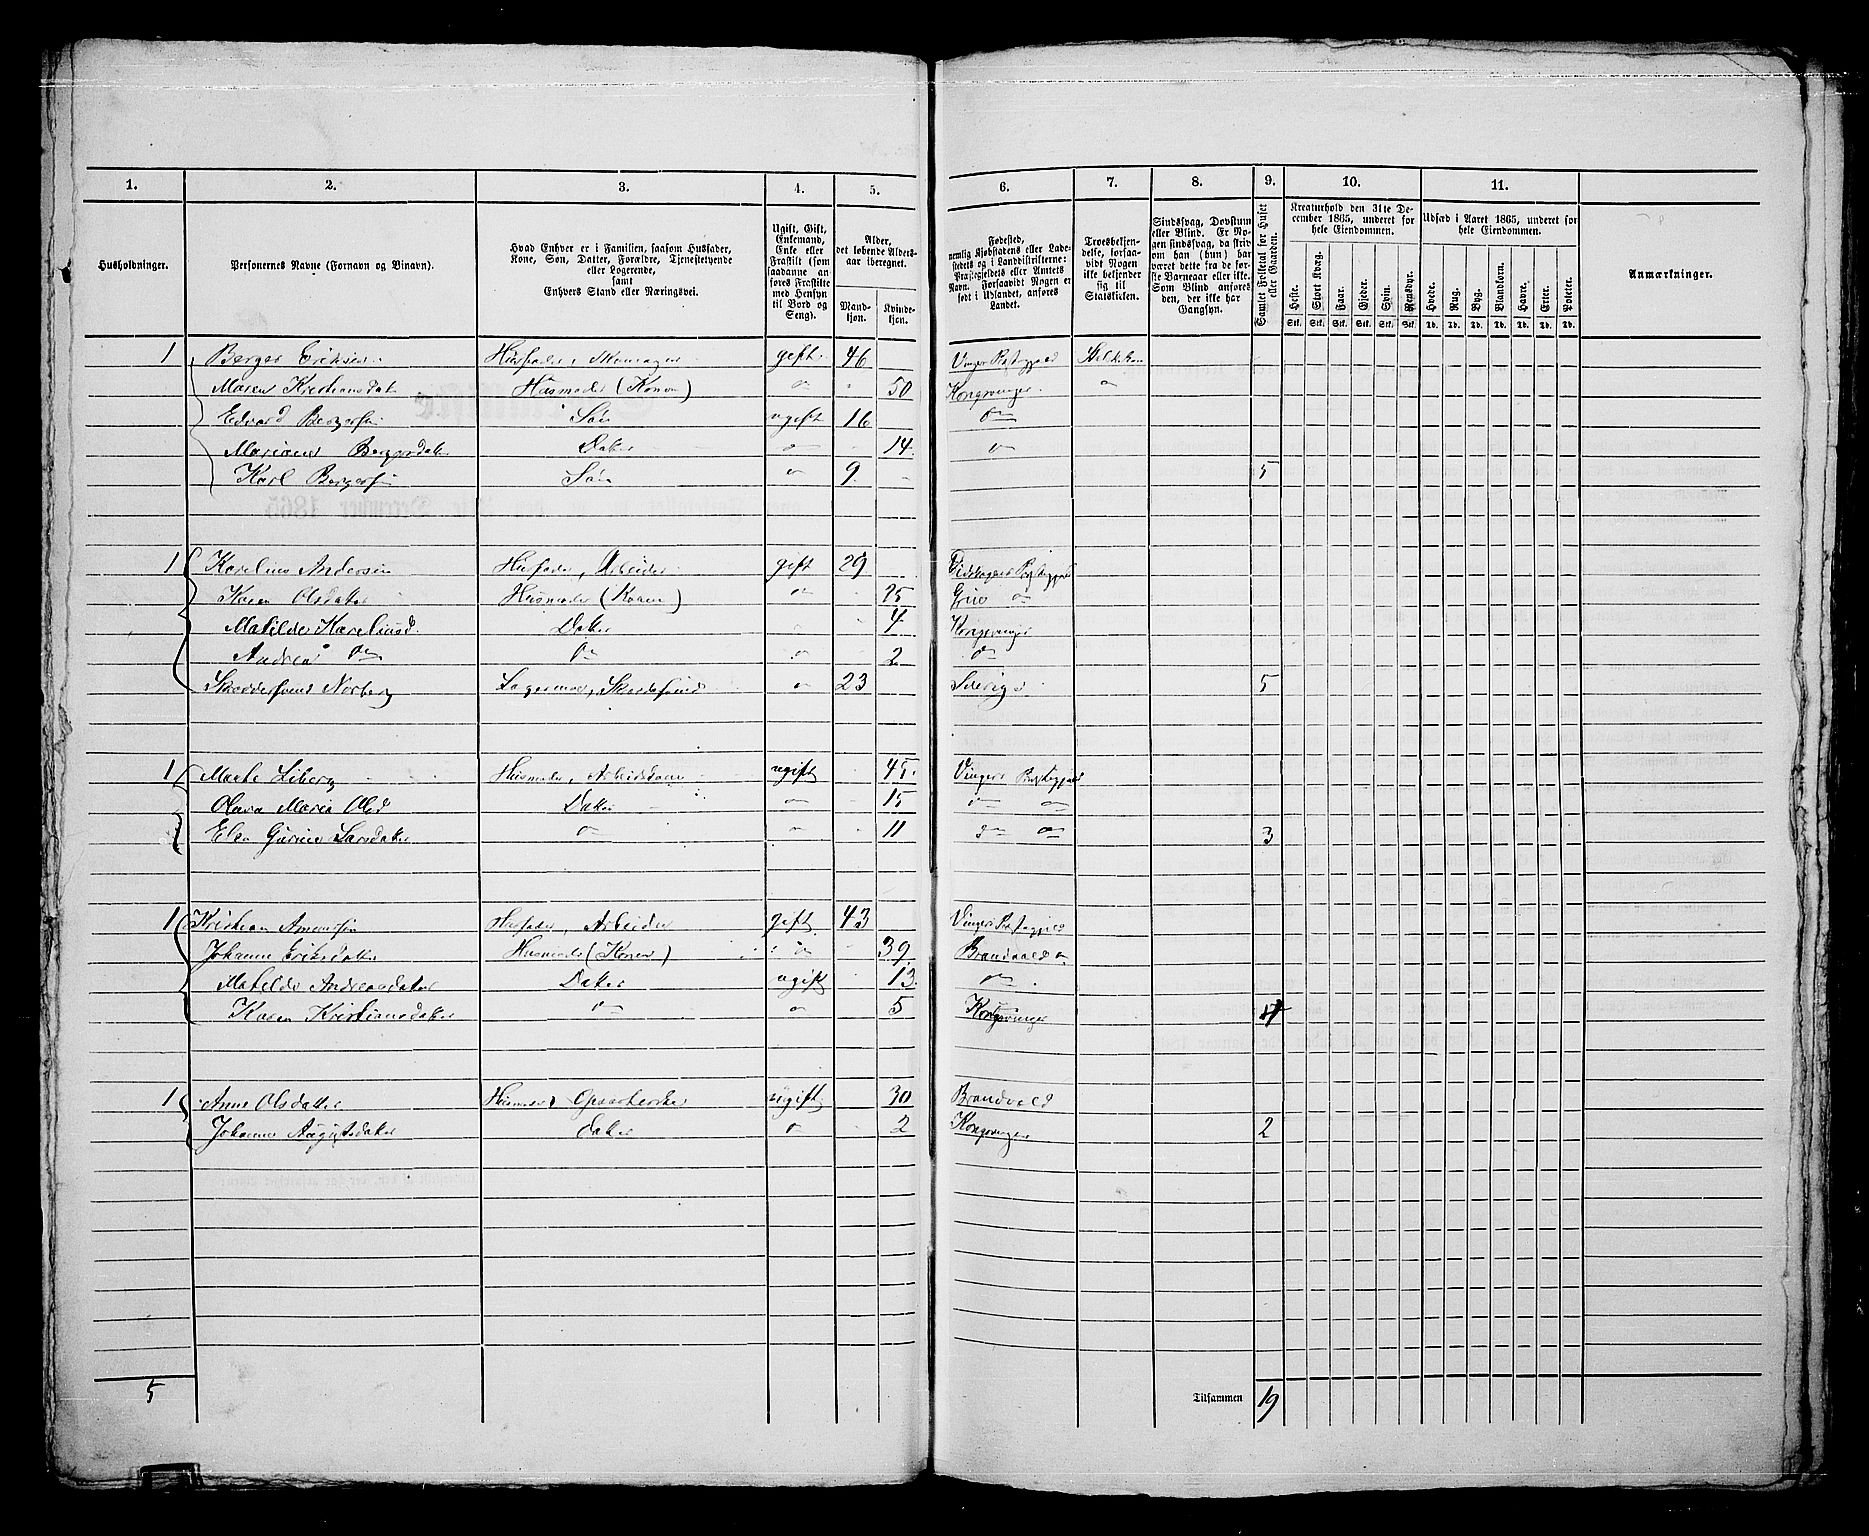 1. 2. 3. 4. 5. 6. 7. 8. 9. 10. 11.
Husholdninger.
Personernes Navne (Fornavn og Binavn).
Hvad Enhver er i Familien, saasom Husfader,
Kone, Søn, Datter, Forældre, Tjenestetyende
eller Logerende,
samt
Enhvers Stand eller Næringsvei.
Ugift, Gift,
Enkemand,
Enke eller
Fraskilt (som
saadanne an-
føres Fraskilte
med Hensyn
til Bord og
Seng).
Alder,
det løbende Alders-
aar iberegnet.
Mand-
kjøn.
Kvinde-
kjøn.
Fødested,
nemlig Kjøbstadens eller Lade-
stedets og i Landdistrikterne:
Præstegjeldets eller Amtets
Navn. Forsaavidt Nogen er
født i Udlandet, anføres
Landet.
Troesbekjen-
delse, forsaa-
vidt Nogen
ikke bekjender
sig til
Statskirken.
Sindssvag, Døvstum
eller Blind. Er No-
gen sindssvag, da skriv
om han (hun) har
været dette fra de før-
ste Barneaar eller ikke.
Som Blind anføres
den, der ikke har
Gangsyn.
Samlet Folketal for Huset
eller Gaarden.
Kreaturhold den 31te De-
cember 1865, underet for
hele Eiendommen.
Heste. Stort Kvæg. Faar. Gjeder. Sviin. Rensdyr.
Stk. Stk. Stk. Stk. Stk. Stk.
Udsæd i Aaret 1865, underet for
hele Eiendommen.
Hvede. Rug. Byg. Blandkorn. Havre. Erter. Poteter.
Td. Td. Td. Td. Td. Td. Td.
Anmærkninger.
1 Berger Eriksen Husfader, Skomager gift 46 Vinger Præstegjæld
Maren Kristiansdat Husmoder (Konen) 〃 50 Kongsvinger
Edvard Bergersen Søn ugift 16 do
Mariane Bergersdatter Datter do 14 do
Karl Bergersen Søn do 9 5
1 Karelius Andersen Husfader, Arbeider gift 29 Eidskogens Præstegjæld
Karen Olsdatter Husmoder (Konen) do 25 Grue do
Matilde Kareliusd Datter 4 Kongsvinger
Andrea do do do 2 do
Skreddersvend Norberg Logerende, Skreddersvend do 23 Sverige 5
1 Marte Liberg Husmoder, ugift 45 Vinger Præstegjæld
Olava Maria Olsd Datter do 15 do do
Elen Gurine Larsdatter do do 11 do do 3
1 Kristian Husfader, Arbeider gift 43 Vinger Præstegjæld
Johanne Eriksdatter Husmoder (Konen) do 39 Brandvold do
Matilde Andreasdatter Datter ugift 13 do
Karen Kristiansdatter do do 5 Kongsvinger 4
1 Anne Olsdatter Husmoder, Opvarterske ugift 30 Brandvold
Johanne Augustsdatter Datter do 2 Kongsvinger 2
5 Tilsammen 19